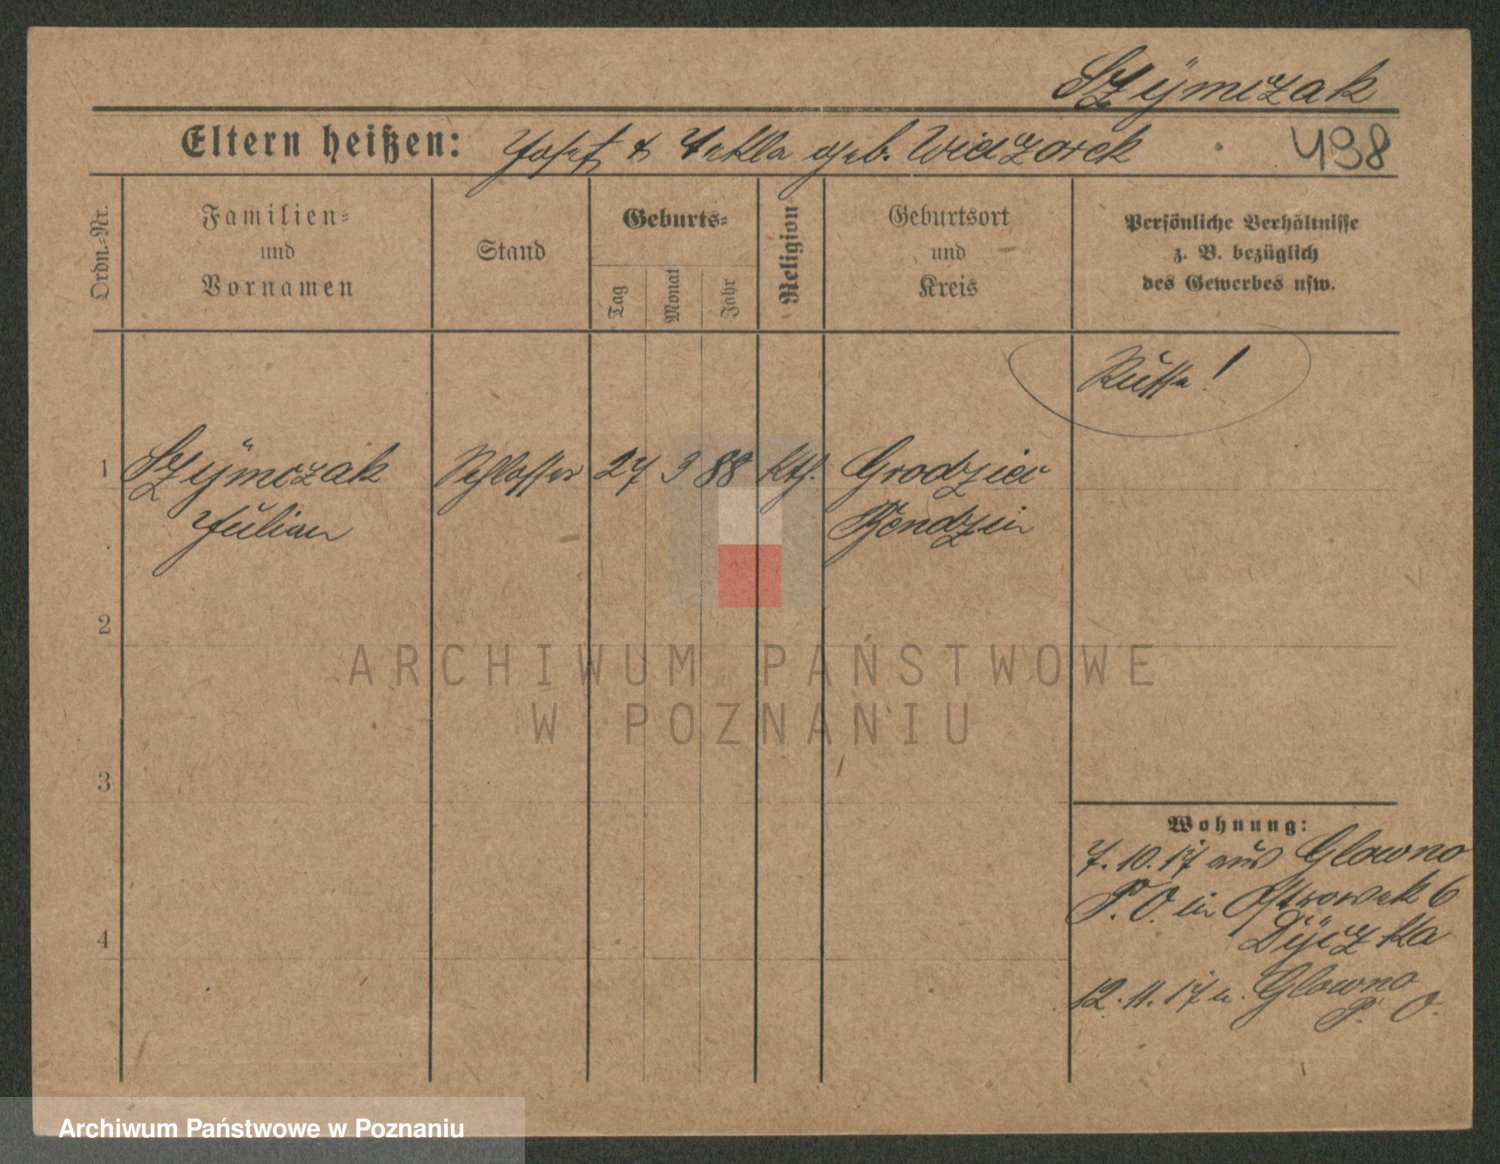 Szÿmczak
Eltern heißen: Josef & Tekla geb. Wieczorek
498
Ordn.-Nr.
Familien-
und
Vornamen
Stand
Geburts-
Tag
Monat
Jahr
Religion
Geburtsort
und
Kreis
Persönliche Verhältnisse
z. B. bezüglich
des Gewerbes usw.
Russe!
1 Szÿmczak Schlosser 27 3 88 kth. Grodziec
Julian Bendzin
2
ARCHIWUM PAŃSTWOWE
W POZNANIU
3
Wohnung:
7. 10. 17 aus Glowno
P. O. in Ostrowek 6
4
12. 11. 17 n. Glowno
P. O.
Archiwum Państwowe w Poznaniu